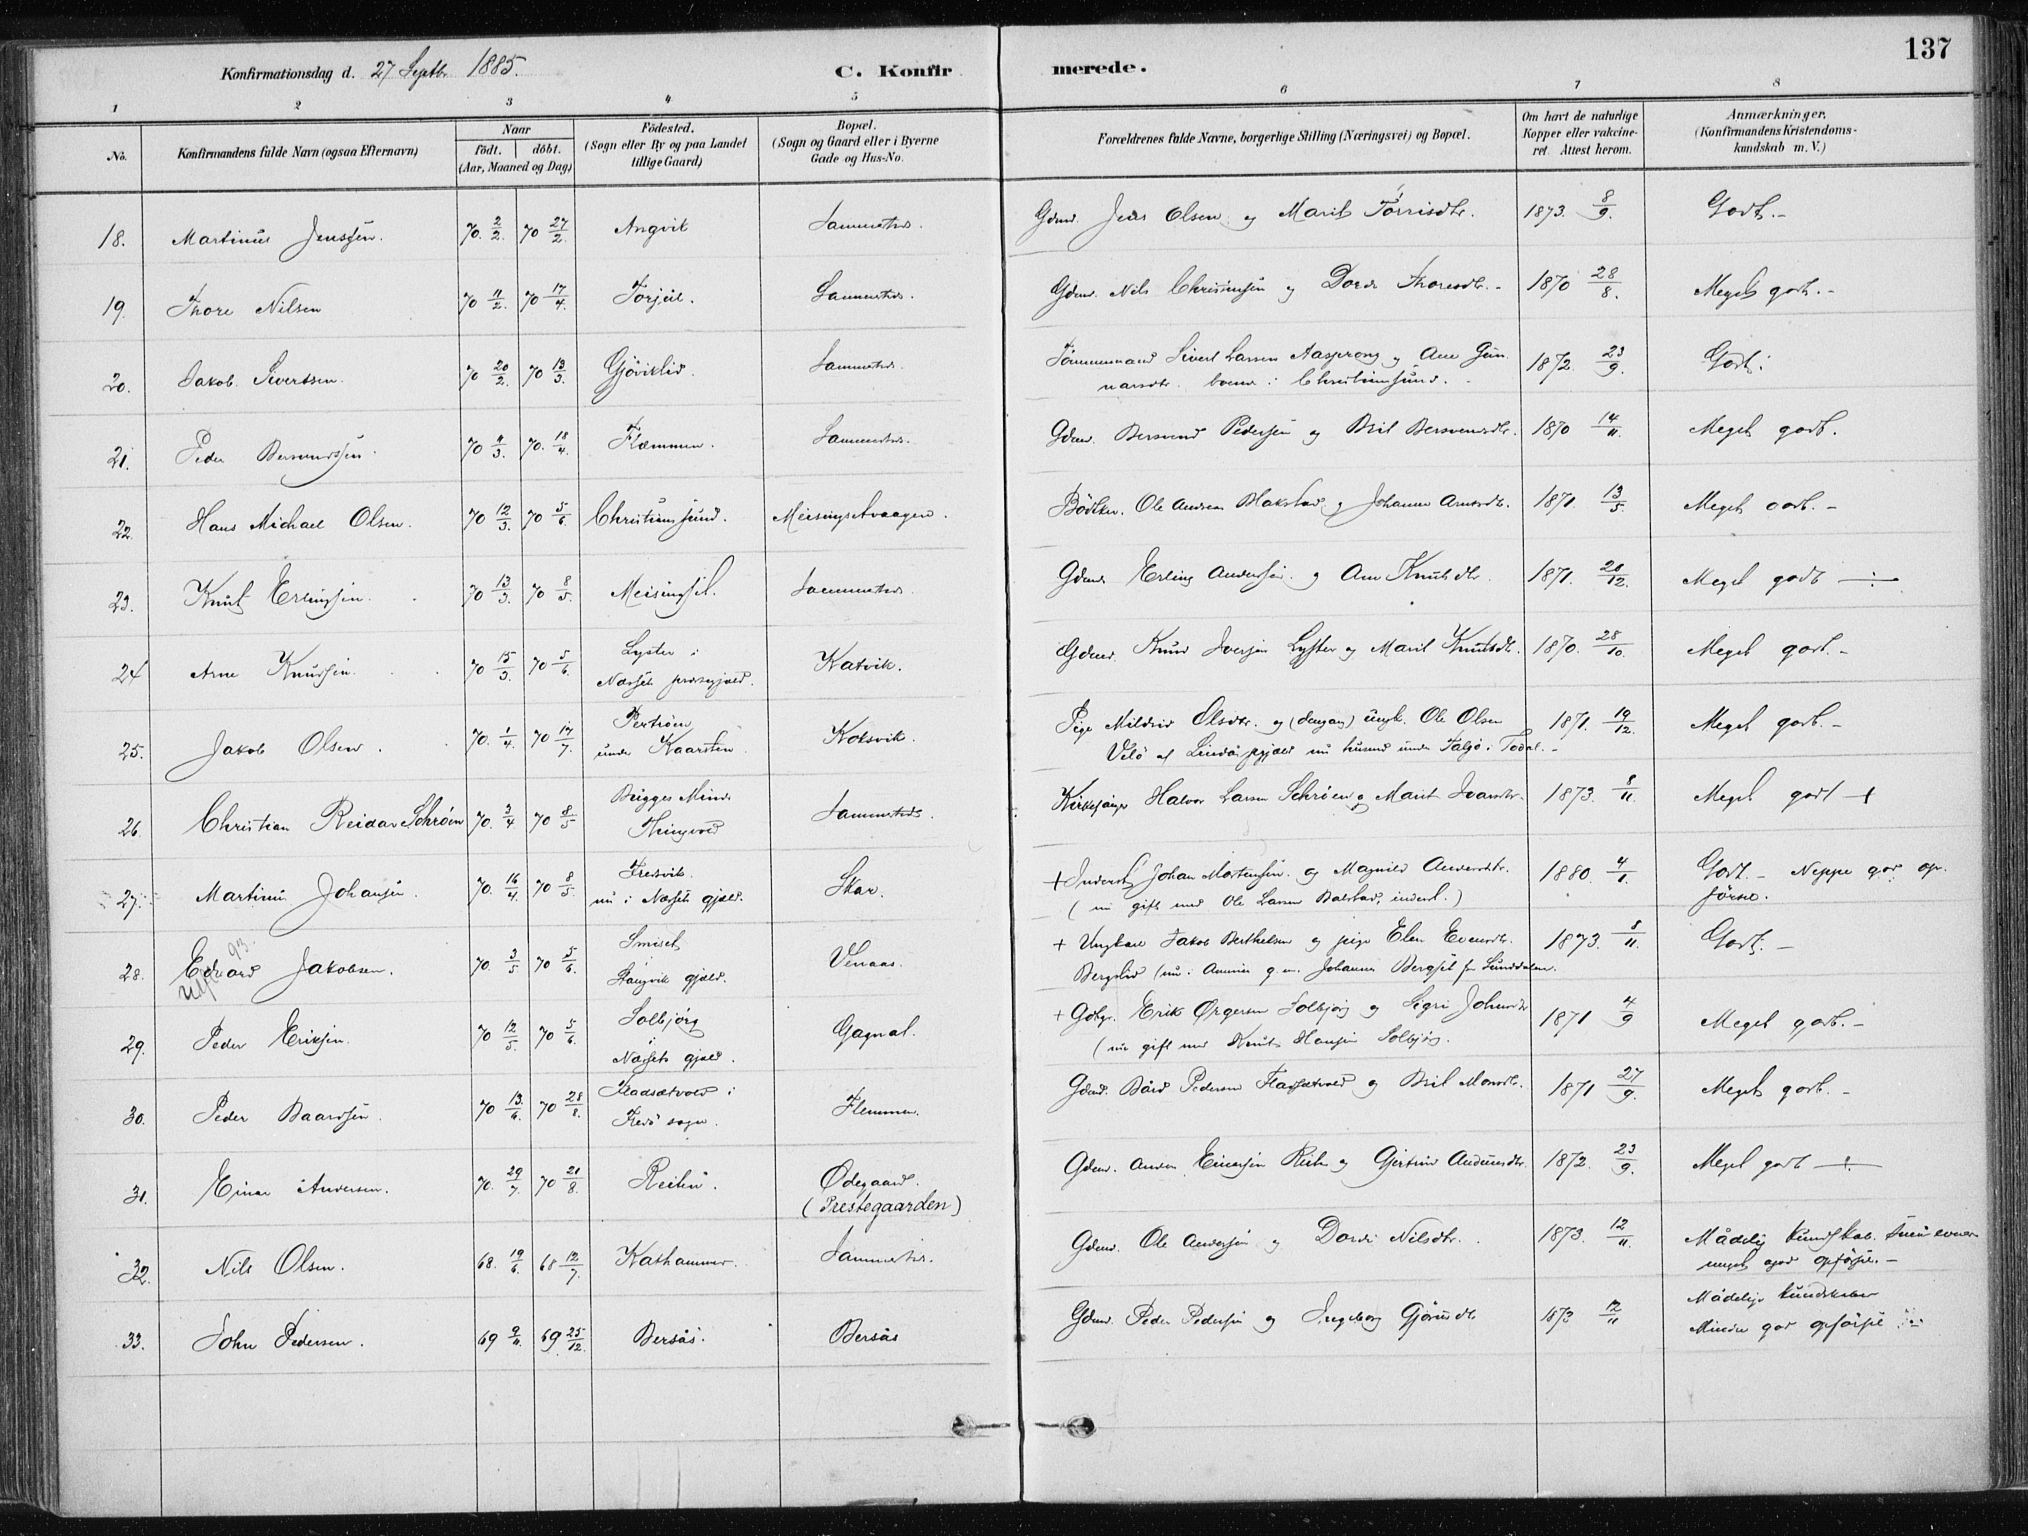 137
Konfirmationsdag d. 27 Septbr 1885.
C. Konfirmerede.
1 2 3 4 5 6 7 8
No.
Konfirmandens fulde Navn (ogsaa Efternavn)
Naar
födt. döbt.
(Aar, Maaned og Dag)
Födested.
(Sogn eller By og paa Landet
tillige Gaard)
Bopæl.
(Sogn og Gaard eller i Byerne
Gade og Hus-No.
Forældrenes fulde Navne, borgerlige Stilling (Næringsvei) og Bopæl.
Om havt de naturlige
Kopper eller vakcine-
ret. Attest herom.
Anmærkninger.
(Konfirmandens Kristendoms-
kundskab m. V.)
18. Martinus Jenssen. 70 2/2. 70 27/2. Angvik Sammesteds. Gdmd. Jens Olsen og Marit Törrisdtr. 1873. 8/9. Godt.-
19. Thore Nilsen 70 11/2. 70 17/4. Torjul. Sammesteds. Gdmd. Nils Christensen og Dordi Thoresdtr.- 1870 28/8. Meget godt.-
20. Jakob Sivertsen. 70 20/2. 70 13/3. Gjöviklid. Sammesteds. Tömmermand Sivert Larsen Aasprong og Ane Gun-
narsdtr. boende i Christiansund. 1872. 23/9. Godt.
21. Peder Bersvendsen. 70 4/3. 70. 18/4. Flemmen. Sammesteds. Gdmd. Bersvend Pedersen og Brit Bersvensdtr. 1870 14/11. Meget godt.
22. Hans Michael Olsen. 70 12/3. 70 5/6. Christiansund. Meisingsetvaagen. Bödker Ole Andreas Blakstad og Johanna Arntsdtr. 1871. 13/5. Meget godt.-
23. Knut Erlingsen. 70 13/3. 70 8/5. Meisingset. Sammesteds. Gdmd. Erling Andersen og Ane Knutsdtr. 1871. 20/12. Meget godt
24 Arne Knudsen. 70 15/3. 70 5/6. Lyster i
Næsset præstegjæld. Katvik. Gdmd. Knud Iversen Lyster og Marit Knutsdtr. 1870. 28/10. Meget godt.-
25. Jakob Olsen. 70. 1/4. 70 17/7. Pertröen
under Kaarsten. Koksvik. Pige Mildrid Olsdtr. og ungk. Ole Olsen
Velö af Lindaas pgjæld nu husmd under Talgö i Todal.- 1871. 19/12. Meget godt.-
26. Christian Reidar Schröen 70. 3/4 70 8/5. Brigges Minde
Thingvold Sammesteds. Kirkesanger Halvor Larsen Schröen og Marit Ivarsdtr. 1873. 8/11. Meget godt +
27. Martinus Johansen 70. 16/4. 70 8/5. Fredsvik
nu i Næssets gjæld. Skar. + Inderst Johan Mortensen og Magnild Andersdtr.
(nu gift med Ole Larsen Balstad, inderst.) 1880. 4/1. Godt.- Neppe god op-
försel.
28. Edvard Jakobsen. 70. 3/5 70 5/6. Smiset
Stangvik gjæld. Venaas. + Ungkarl Jakob Berthelsen og pige Elen Evensdtr.
Bergslid 1873. 8/11. Godt.-
29. Peder Eriksen. 70 12/5. 70 5/6. Solbjörg
i
Næssets gjæld. Gagnat. + Gdbr. Erik Ørgersen Solbjörg og Sigri Johnsdtr
(nu gift med Knut Hansen Solbjörg. 1871 4/9 Meget godt.-
30. Peder Baardsen. 70 13/6. 70 28/8. Fladsætvold i
Kredö sogn. Flemmen. Gdmd. Bård Pedersen Fladsætvold og Brit Monsdtr. 1871 27/9. Meget godt.-
31. Einar Andersen. 70. 29/7. 70 21/8. Reiten. Ødegaard.
(Prestegaarden) Gdmd. Anders Einarsen Reiten og Gjertrud Andersdtr. 1872. 23/9. Meget godt
32. Nils Olsen. 68. 19/6. 68 12/7. Kathammer. Sammesteds. Gdmd. Ole Andersen og Dordi Nilsdtr. 1873. 12/11. Mådelig kundskab. Små evner
meget god opförsel.-
33. John Pedersen. 69 9/11. 69 25/12. Bersås. Bersås Gdmd. Peder Pedersen og Ingeborg Gjörensdtr 1873 12/11 Mådelige kundskaber
Mindre god opförsel